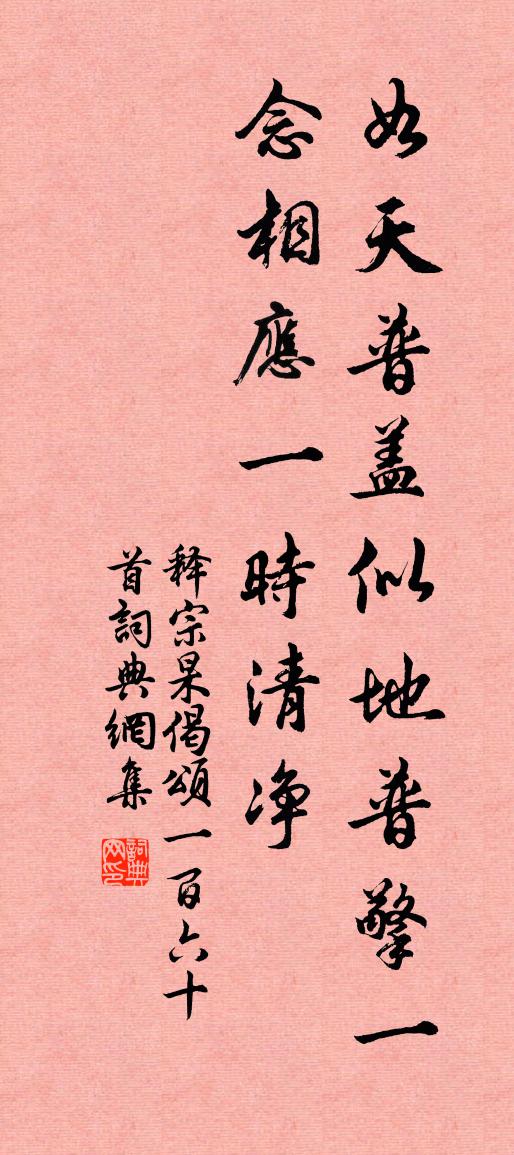 如天普盖似地普擎一
念相應一時清净
释宗杲偈頌一百六十
首詞典網集
詞典
网印